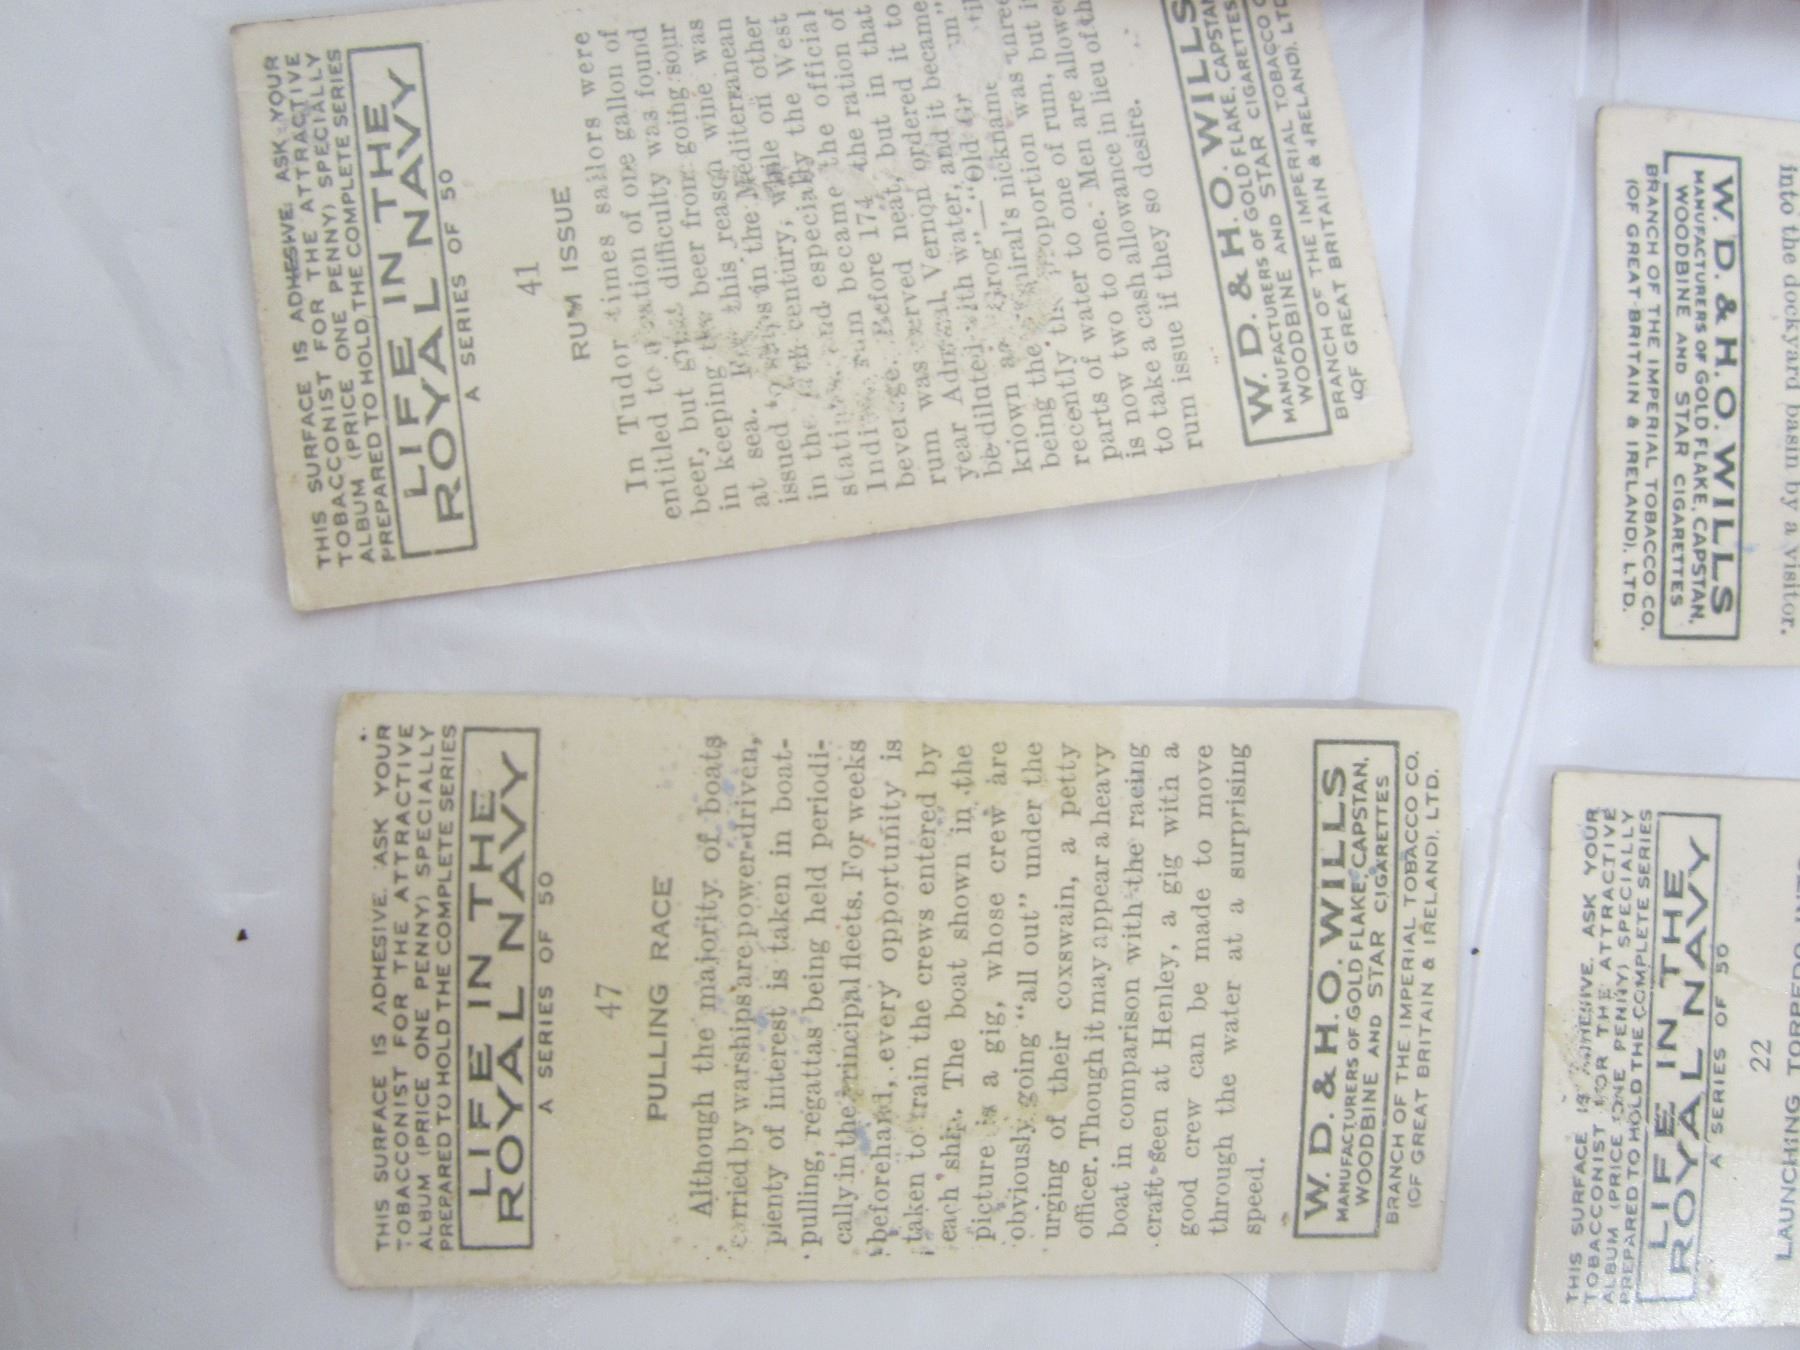 THIS SURFACE IS ADHESIVE. ASK YOUR
TOBACCONIST FOR THE ATTRACTIVE
ALBUM (PRICE ONE PENNY) SPECIALLY
PREPARED TO HOLD THE COMPLETE SERIES
LIFE IN THE
ROYAL NAVY
A SERIES OF 50
41
RUM ISSUE
In Tudor times sailors were
entitled to a ration of one gallon of
beer, but great difficulty was found
in keeping the beer from going sour
at sea. For this reason wine was
issued in the Mediterranean
in the century, while on other
stations and especially the West
Indies rum became the official
beverage. Before 174 the ration of
rum was served neat, but in that
year Admiral Vernon ordered it to
be diluted with water, and it became
known as "Grog"—"Old
being the Admiral's nickname
recently the proportion was three
parts of water to one of rum, but it
is now two to one. Men are allowed
to take a cash allowance in lieu of th
rum issue if they so desire.
W. D. & H. O. WILLS
MANUFACTURERS OF GOLD FLAKE, CAPSTAN
WOODBINE AND STAR CIGARETTES
BRANCH OF THE IMPERIAL TOBACCO C
(OF GREAT BRITAIN & IRELAND), LTD
THIS SURFACE IS ADHESIVE. ASK YOUR
TOBACCONIST FOR THE ATTRACTIVE
ALBUM (PRICE ONE PENNY) SPECIALLY
PREPARED TO HOLD THE COMPLETE SERIES
LIFE IN THE
ROYAL NAVY
A SERIES OF 50
47
PULLING RACE
Although the majority of boats
carried by warships are power-driven,
plenty of interest is taken in boat-
pulling, regattas being held periodi-
cally in the principal fleets. For weeks
beforehand, every opportunity is
taken to train the crews entered by
each ship. The boat shown in the
picture is a gig, whose crew are
obviously going "all out" under the
urging of their coxswain, a petty
officer. Though it may appear a heavy
boat in comparison with the racing
craft seen at Henley, a gig with a
good crew can be made to move
through the water at a surprising
speed.
W. D. & H. O. WILLS
MANUFACTURERS OF GOLD FLAKE, CAPSTAN,
WOODBINE AND STAR CIGARETTES
BRANCH OF THE IMPERIAL TOBACCO CO.
(OF GREAT BRITAIN & IRELAND), LTD.
into the dockyard basin by a visitor.
W. D. & H. O. WILLS
MANUFACTURERS OF GOLD FLAKE, CAPSTAN,
WOODBINE AND STAR CIGARETTES
BRANCH OF THE IMPERIAL TOBACCO CO.
(OF GREAT BRITAIN & IRELAND), LTD.
THIS SURFACE IS ADHESIVE. ASK YOUR
TOBACCONIST FOR THE ATTRACTIVE
ALBUM (PRICE ONE PENNY) SPECIALLY
PREPARED TO HOLD THE COMPLETE SERIES
LIFE IN THE
ROYAL NAVY
A SERIES OF 50
22
LAUNCHING TORPEDO INTO